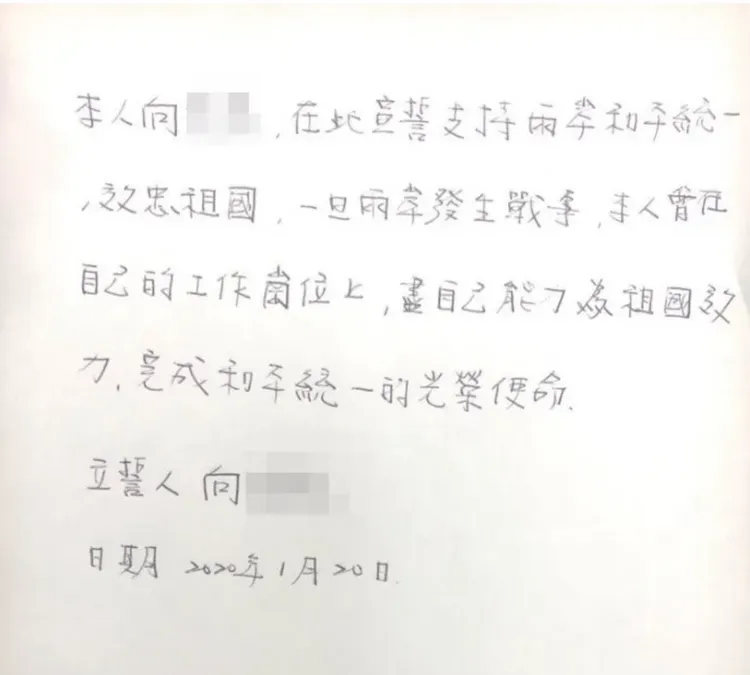 本人向，在此宣誓支持兩岸和平統一
，效忠祖國，一旦兩岸發生戰爭，本人會在
自己的工作崗位上，盡自己能力為祖國效
力，完成和平統一的光榮使命．
立誓人 向
日期 2020年1月20日．